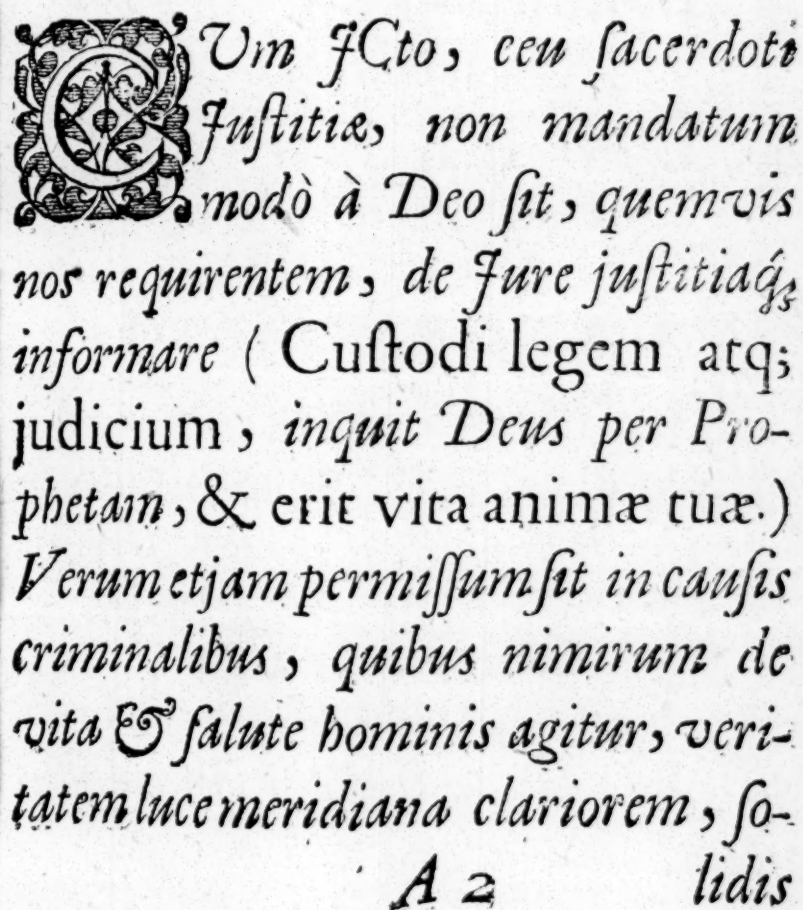 CUm JCto, ceu ſacerdoti
Juſtitiæ, non mandatum
modò à Deo ſit, quemvis
nos requirentem, de Jure juſtitiaq́;
informare ( Cuſtodi legem atq;
judicium, inquit Deus per Pro-
phetam, & erit vita animæ tuæ.)
Verum etjam permiſſum ſit in cauſis
criminalibus, quibus nimirum de
vita & ſalute hominis agitur, veri-
tatem luce meridiana clariorem, ſo-
A 2 lidis